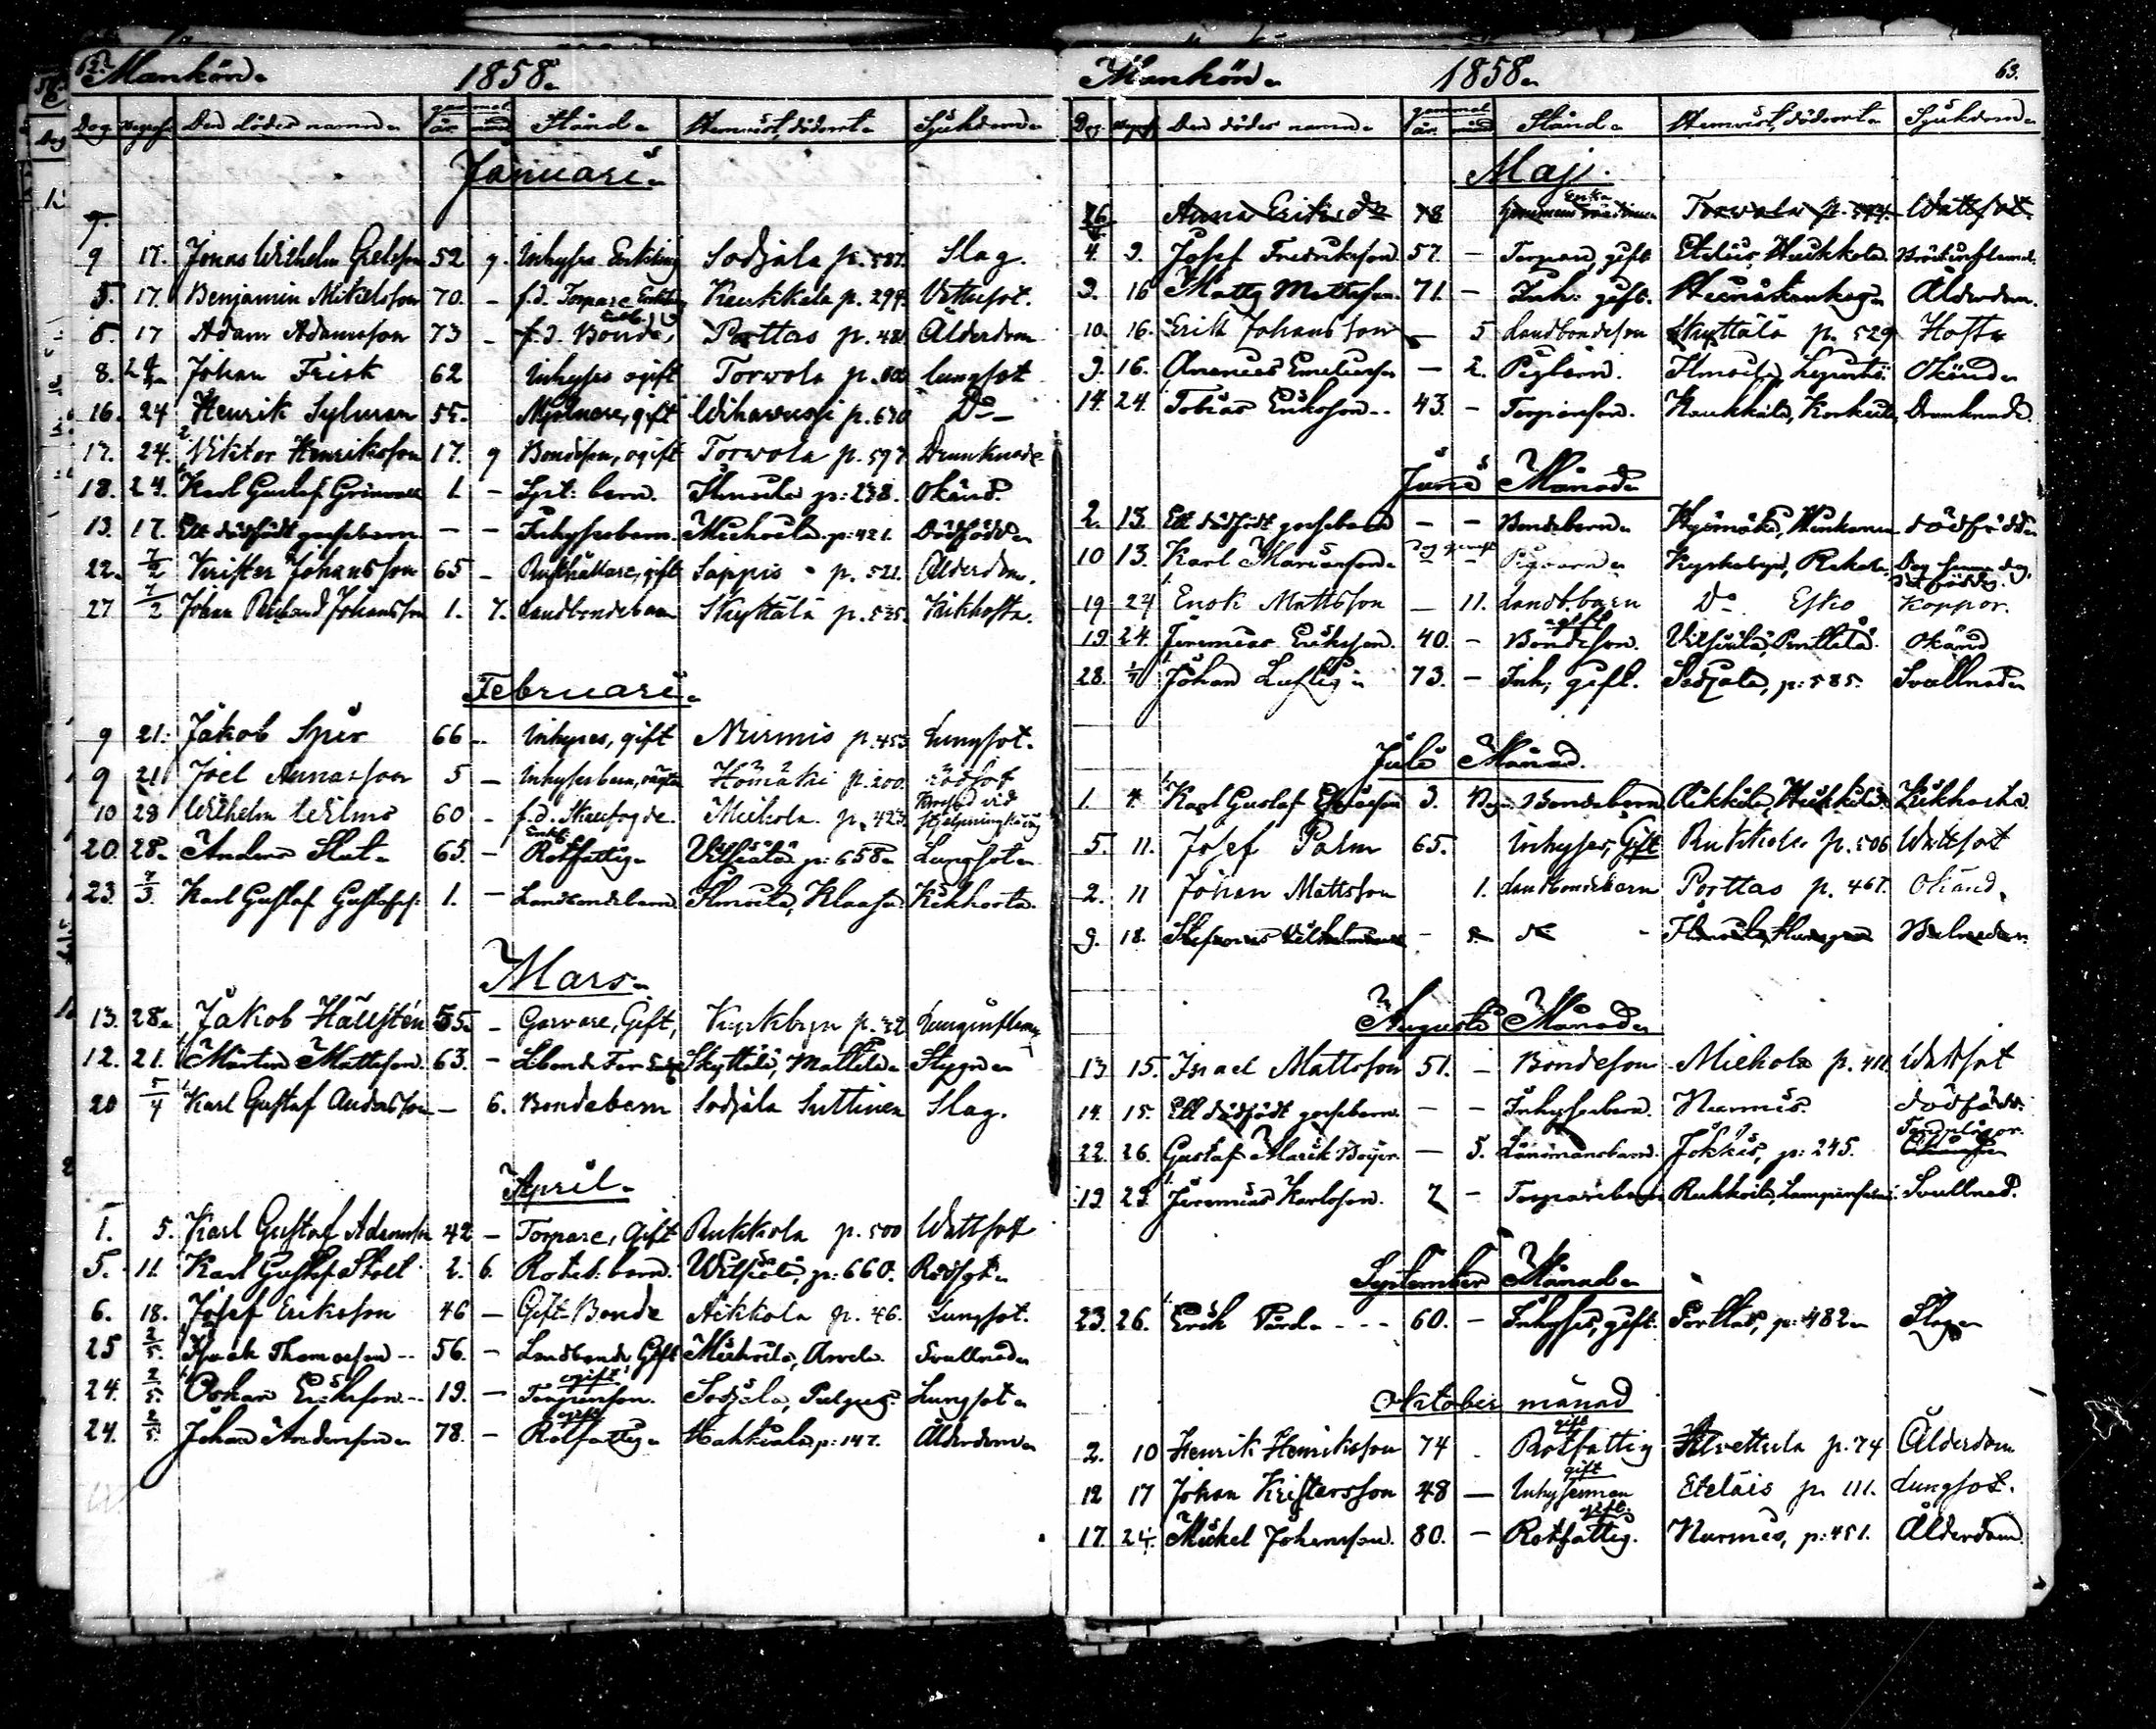 62. Mankön. 1858.
Dag. Begrafn. Den dödes namn. gammal år. månad Stånd. Hemvist, dödsort. Sjukdom.
Januari.
9 17. Jonas Wilhelm 52 9. Inhyses Enkling Sodjala p. 587. Slag.
5. 17. Benjamin Mikelsson 70. - f.d. Torpare Enkling Kaukkala p. 299. Vattusot.
5. 17 Adam Adamsson 73 - f.d. Bonde, Porttas p. 481. Ålderdom
8. 24 Johan Frisk 62 Inhyses ogift Torwola p. 600 lungsot
16. 24 Henrik Sylvman 55. Mjölnare, gift Wiharniemi p. 630 Do
17. 24. Viktor Henriksson 17. 9 Bondeson, ogift Torwola p. 597 Drunknade
18. 24. Karl Gustaf Grönvall 1. - barn. Ilmoila p: 238. Okänd.
13. 17. Ett dödfödt gossebarn - - Inhysesbarn. Miehoila p: 421. Dödfödd
22. 7/2 Krister Johansson 65 - Rusthållare, gift Sappis p. 521. Ålderdom.
27 7/2 Johan Richard Johansson 1. 7. Landbondebarn Skyttälä p. 535. Kikhosta.
Februari.
9 21. Jakob Spir 66 - Inhyses, gift Nurmis p. 453 Lungsot.
9 21 Joel Annasson 5 - Inhyses barn, oägta Homäki p. 200. Rödsot
10 28 Wilhelm Wilms 60 - f.d. Skarfogde. Miehola. p. 423.
20 28. Anders Slut. 65. - Enkl. Rotfattig Vitsiälä p: 658 Lungsot
23. 7/3. Karl Gustaf Gustafss: 1. - Landbondebarn. Ilmoila, Klaasa. Kikhosta.
Mars.
13. 28. Jakob Hällsten 55. - Garvare, Gift, Kyrkbyn p. 32 Lunginflam
12. 21. Mårten Mattsson. 63. - Skyttälä, Mattila Stygn
20 5/4 Karl Gustaf Andersson - 6. Bondebarn Sodjala Suttinen Slag.
April.
1. 5. Karl Gustaf Adamsson 42 - Torpare, Gift Rukkola p. 500 Wattsot
5. 11. Karl Gustaf Stolt 2. 6. Roteb: barn. Witsiälä, p: 660. Rödsot
6. 18. Josef Eriksson 46 - Gift Bonde Aikkola p. 46. Lungsot.
25 2/5. Isaak Thomasson 56. - Landbonde, Gift Miehoila, Arvela. Svullnad
24. 2/5. Oskar Eriksson 19. - ogift Torpareson. Sodjala, Lungsot
24. 2/5. Johan Andersson 78. - ogift Rotfattig Hahkiala p: 147. Ålderdom
Mankön. 1858. 63.
Dag. Begrafn. Den dödes namn. gammal år. månad Stånd. Hemvist, dödsort. Sjukdom.
Maj.
26 Anna Eriksdr 78 Enka Torwola p. 594. Wattsot.
4. 9. Josef Fredriksson 57. - Torpare, gift Eteläis, Huikkola. Bröstinflamat.
9. 16 Matts Mattsson. 71. - Inh: gift. Ålderdom.
10. 16. Erik Johansson - 5 Landbondeson Skyttälä p. 529 Hosta
9. 16. - 2. Pigbarn. Ilmoila, Okänd
14. 24. Tobias Eriksson 43. - Torpareson. Kaukkala, Drunknade.
Juni Månad
2. 13. Ett dödfödt gossebarn - - Bondebarn Hyömäki, dödfödd
10 13. Karl Mariansson Pigbarn Kyrkobyn,
19 24 Enok Mattsson - 11. Landb. barn Do Esko Koppor.
19. 24. Jeremias Eriksson. 40. - ogift Bondeson. Vitsiälä, Penttilä. Okänd
28. 1/7 Johan Luftig 73. - Inh, gift. Sodjala, p: 585. Svullnad
Juli Månad.
1. 4. Karl Gustaf 3. Bondebarn Aikkola, Heikkilä. Kikhosta.
5. 11. Josef Palm 65. Inhyses, Gift Rukkola p. 506 Wattsot
2. 11 Johan Mattsson 1. Landbondebarn Porttas p. 467. Okänd,
9. 18. - Ilmoila,
Augusti Månad
13 15. Israel Mattsson 51. - Bondeson Miehola p. 411 Wattsot
14. 15. Ett dödfödt gossebarn. - - Inhysesbarn. Nurmis. dödfödd.
22. 26. Gustaf Maurits Boijer. - 5. Länsmansbarn. Jokkis, p: 245. Tandplågor.
19 29 Jeremias Karlsson. 2 - Torparebarn Rukkoila, Svullnad.
September Månad
23. 26. Erik Pärd - - - 60. - Inhyses, gift. Porttas, p: 482 Slag
Oktober månad
2. 10 Henrik Henriksson 74 - gift Rotfattig Alvettula p. 74 Ålderdom
12 17 Johan Kristersson 48 - gift Inhysesman Eteläis p. 111. Lungsot.
17. 24. Mickel Johansson. 80. - gift. Rotfattig. Nurmis, p: 451. Ålderdom.